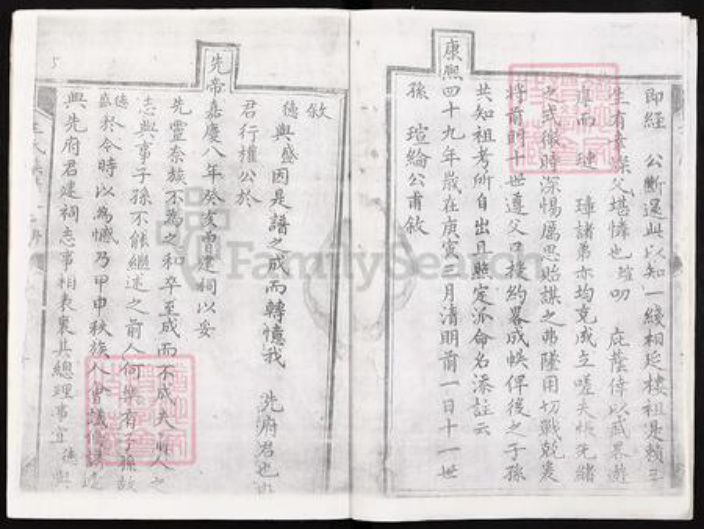 即經 公斷還此以知一綫相延樓祖是賴三
生有幸深父堪憐也 叨 庇蔭倖以武畧遊
庠而 璉 璋諸弟亦均克成立嗟夫悵先緒
之式微時深惕厲思貽謀之弗墜用切戰兢爰
將前明十世遵父口授約畧成帙俾後之子孫
共知祖考所自出且照定派命名添註云
康熙四十九年歲在庚寅三月清明前一日十一世
孫 瑄綸公甫敘
敘
德 與盛因是譜之成而轉憶我 先府君也
君行權公於
先帝嘉慶八年癸亥而建祠以妥
先靈奈族不為之和卒至成而不成夫前人之
志與事子孫不能繼述之前人何樂有子孫故
德盛於今時以為憾乃甲申秋族人會議修譜
與先府君建祠志事相表裏其總理事宜 德與
FamilySearch